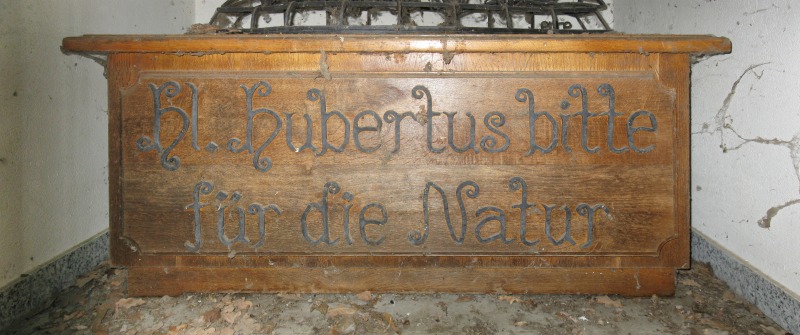 hl. hubertus bitte
für die Natur